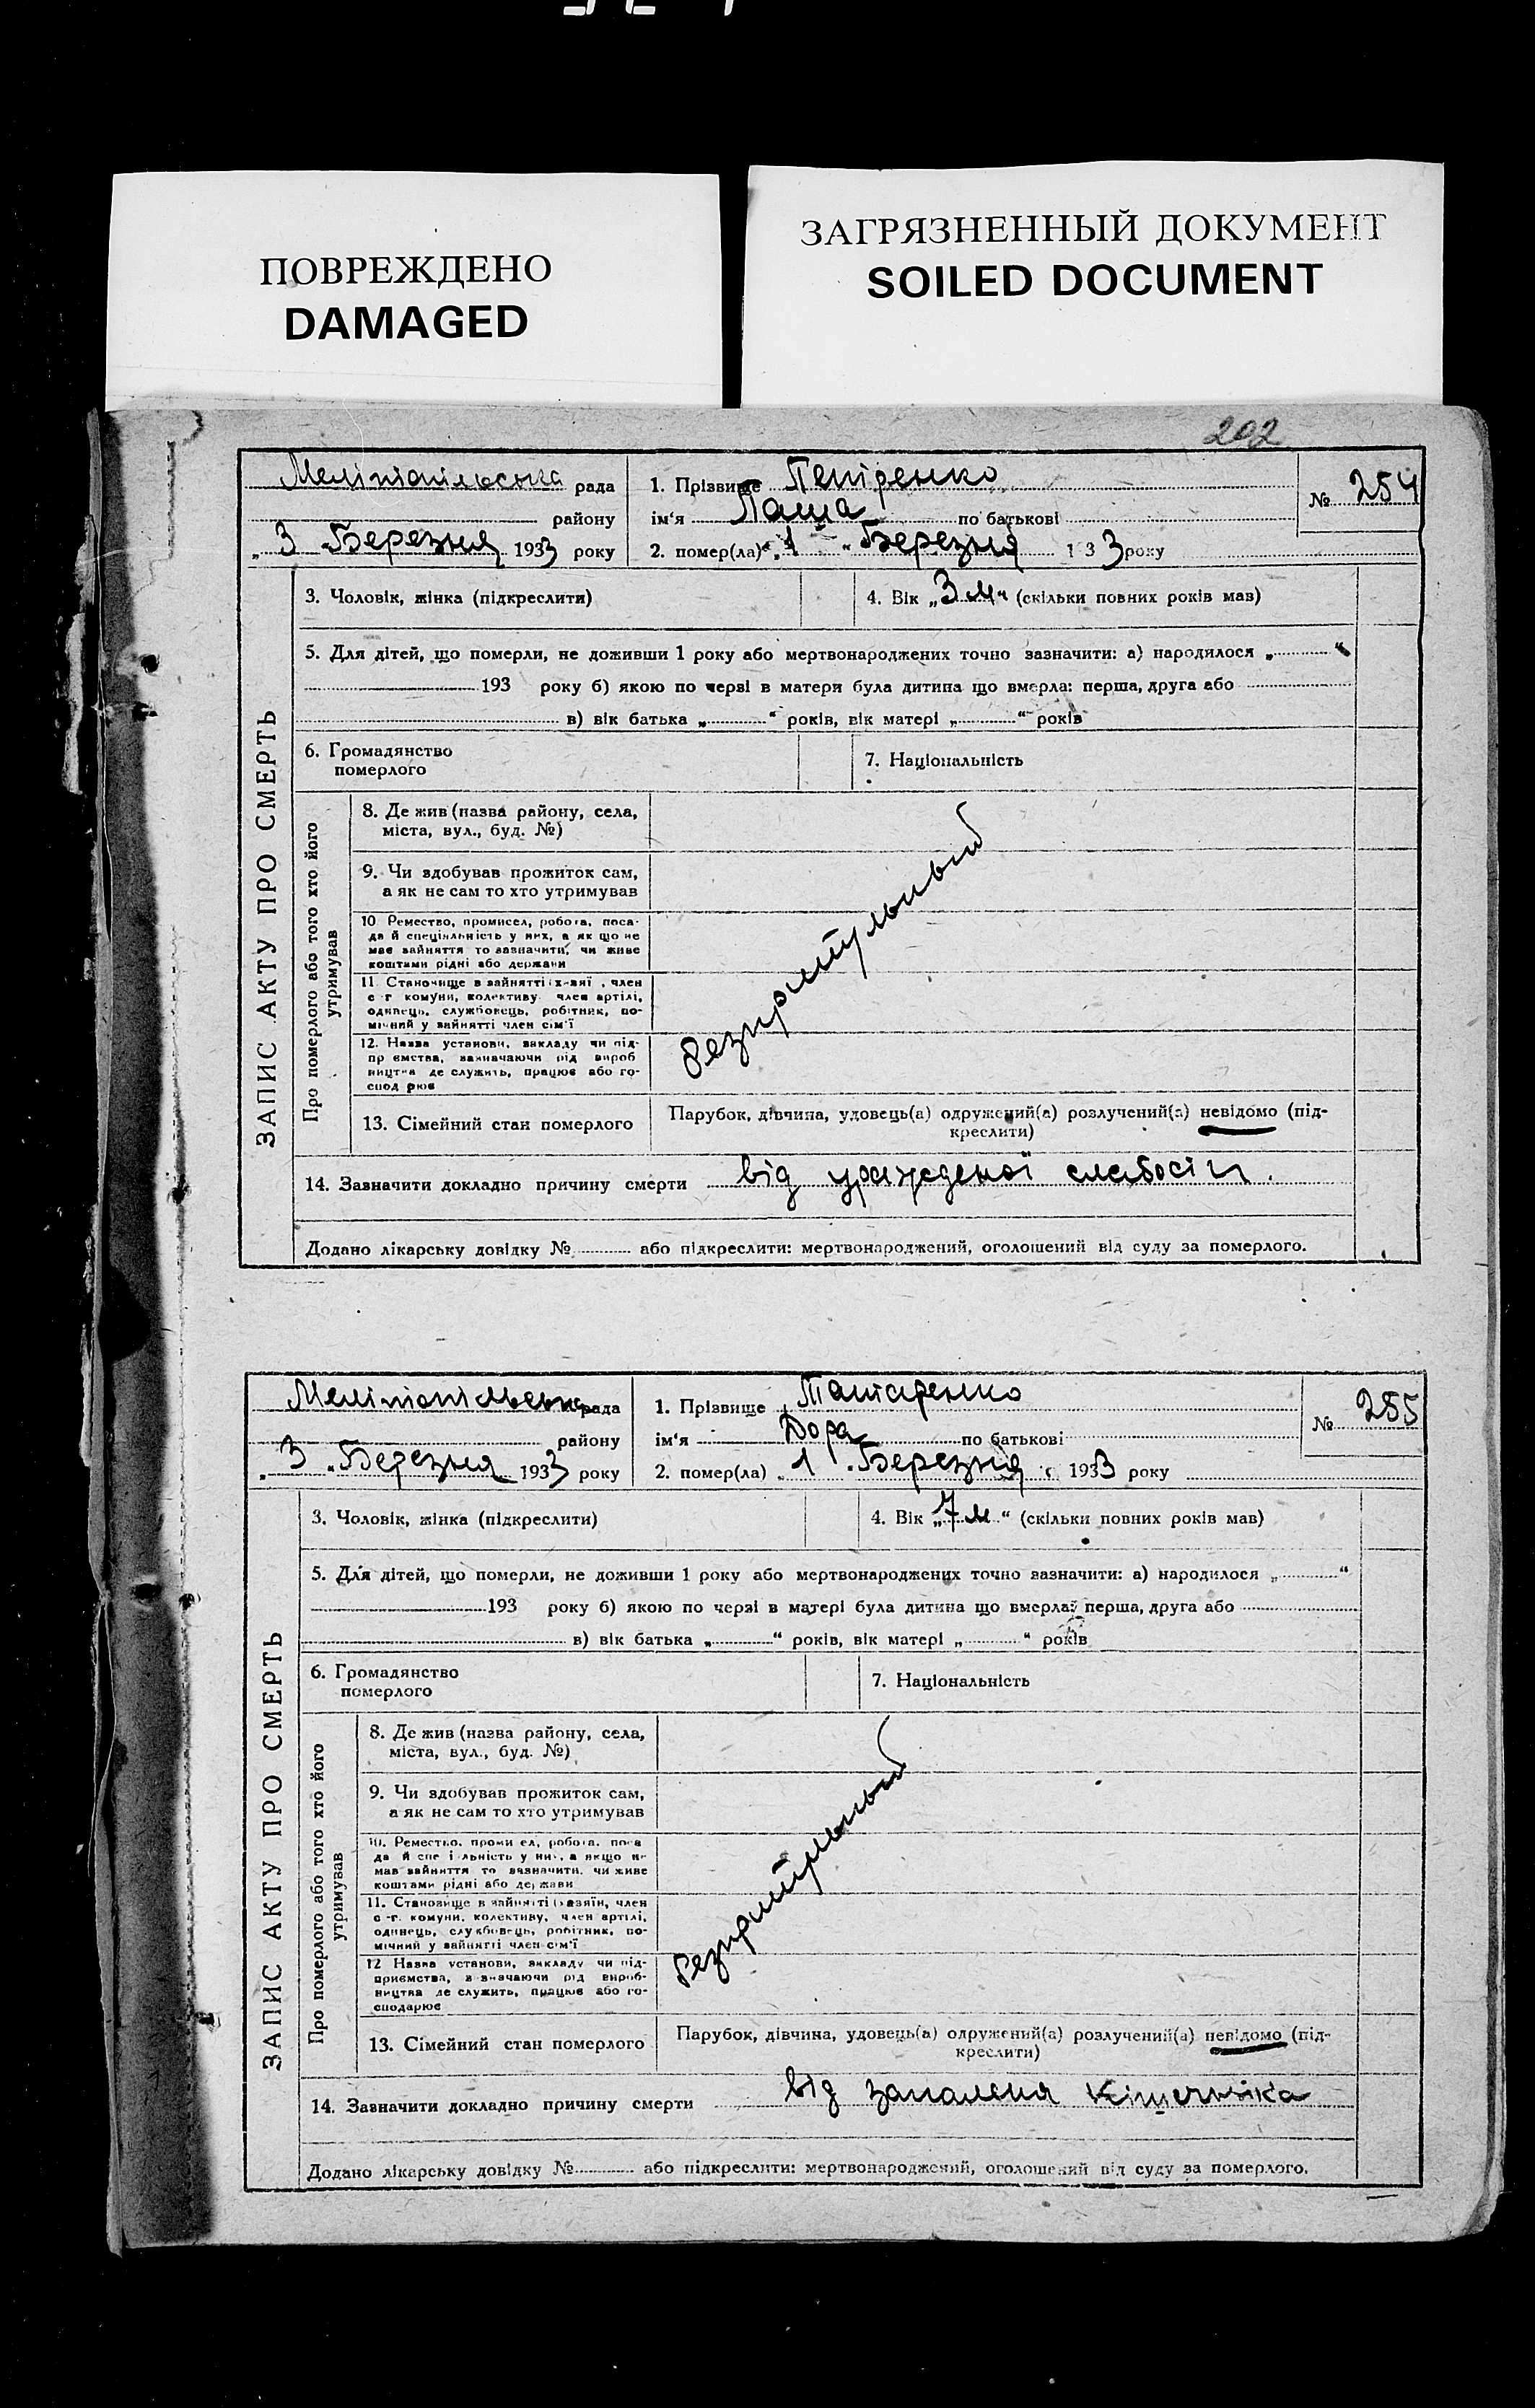 ПОВРЕЖДЕНО
DAMAGED
ЗАГРЯЗНЕННЫЙ ДОКУМЕНТ
SOILED DOCUMENT
202
ЗАПИС АКТУ ПРО СМЕРТЬ
Мелітопільська рада
району
„ 3 „ Березня 1933 року
1. Прізвище Петренко
ім‘я Паша по батькові
2. помер(ла) „ 1 “ Березня 1 3 3 року
№ 254
3. Чоловік, жінка (підкреслити)
4. Вік „ 3 м “ (скільки повних років мав)
5. Для дітей, що померли, не доживши 1 року або мертвонароджених точно зазначити: а) народилося „ “
193 року б) якою по черзі в матери була дитина що вмерла: перша, друга або
в) вік батька „ “ років, вік матері „ “ років
6. Громадянство
померлого
7. Національність
Про померлого або того хто його
утримував
8. Де жив (назва району, села,
міста, вул., буд. №)
9. Чи здобував прожиток сам,
а як не сам то хто утримував
10 Ремество, промисел, робота, поса-
да й спеціяльність у них, а як що не
має зайняття то зазначити, чи живе
коштами рідні або держави
11. Становище в зайнятті , член
с-г комуни, колективу, член артілі,
одинець, службовець, робітник, по-
мічний у зайнятті член сім‘ї
12. Назва установи, закладу чи під-
пр ємства, зазначаючи рід вироб
ництва де служить, працює або го-
спод рює
безпритульный
13. Сімейний стан померлого
Парубок, дівчина, удовець(а) одружений(а) розлучений(а) невідомо (під-
креслити)
14. Зазначити докладно причину смерти від урожденої слабости.
Додано лікарську довідку № або підкреслити: мертвонароджений, оголошений від суду за померлого.
ЗАПИС АКТУ ПРО СМЕРТЬ
Мелітопільська рада
району
„ 3 „ Березня 1933 року
1. Прізвище Татаренко
ім‘я Дора по батькові
2. помер(ла) „ 1 „ Березня 1933 року
№ 255
3. Чоловік, жінка (підкреслити)
4. Вік „ 7 м “ (скільки повних років мав)
5. Для дітей, що померли, не доживши 1 року або мертвонароджених точно зазначити: а) народилося „ “
193 року б) якою по черзі в матері була дитина що вмерла: перша, друга або
в) вік батька „ “ років, вік матері „ “ років
6. Громадянство
померлого
7. Національність
Про померлого або того хто його
утримував
8. Де жив (назва району, села,
міста, вул., буд. №)
9. Чи здобував прожиток сам,
а як не сам то хто утримував
10. Ремество, проми ел, робота, поса
да й спе і льність у них, а якщо не
мав зайняття то зазначити, чи живе
коштами рідні або держави
11. Становище в зайнятті хазяїн, член
с-г. комуни, колективу, член артілі,
одинець, службовець, робітник, по-
мічний у зайнятті член сім‘ї
12 Назва установи, закладу чи під-
приємства, зазначаючи рід вироб-
ництва де служить, працює або го-
сподарює
безпритульный
13. Сімейний стан померлого
Парубок, дівчина, удовець(а) одружений(а) розлучений(а) невідомо (під-
креслити)
14. Зазначити докладно причину смерти від запаленя кішечніка
Додано лікарську довідку № або підкреслити: мертвонароджений, оголошений від суду за померлого.